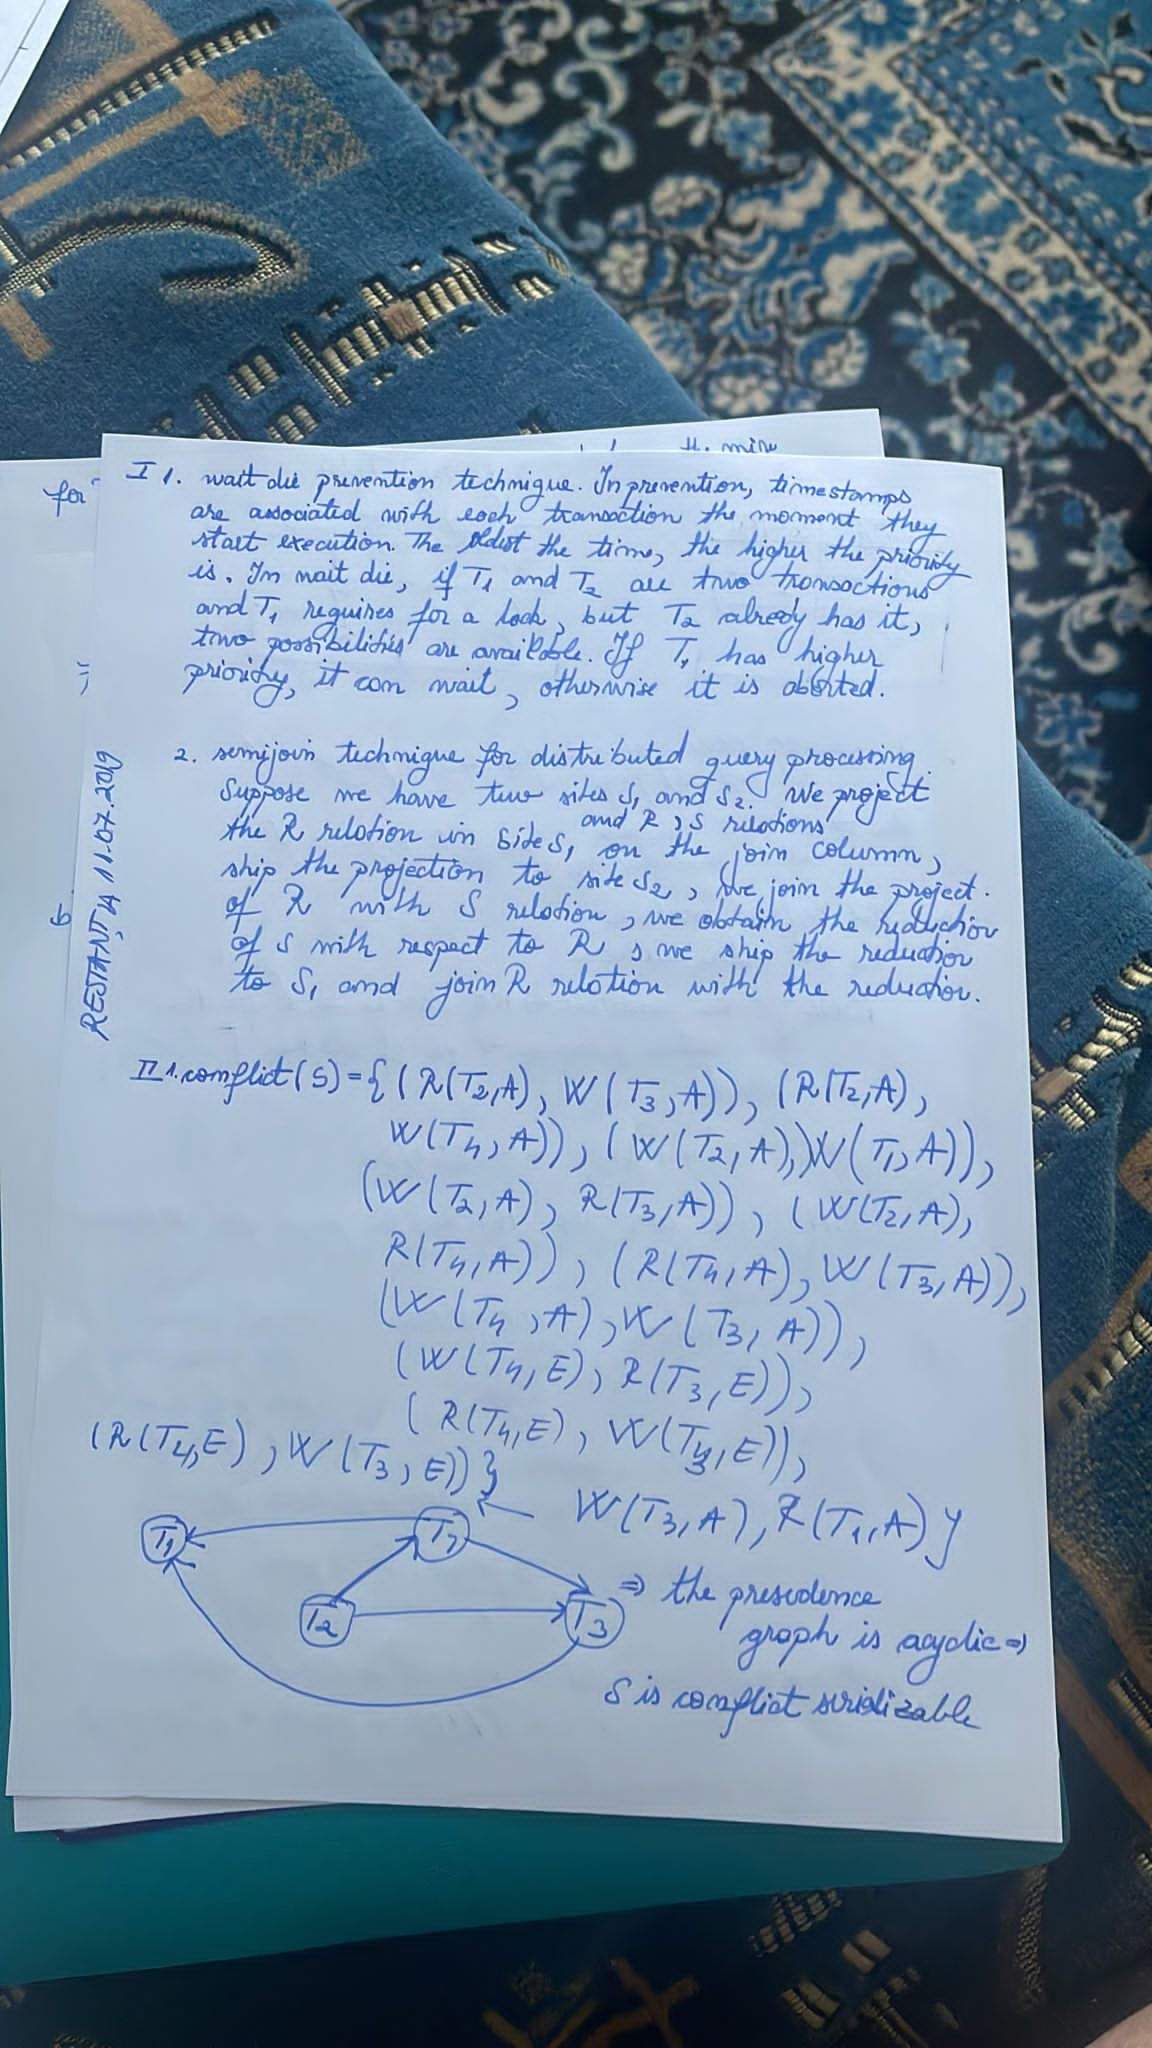 th. mire
for
I 1. wait die prevention technique. In prevention, timestamps
are associated with each transaction the moment they
start execution. The oldest the time, the higher the priority
is. In wait die, if T1 and T2 are two transactions
and T1 requires for a lock, but T2 already has it,
two possibilities are available. If T1 has higher
priority, it can wait, otherwise it is aborted.
RESTANȚĂ 11.07.2019
2. semijoin technique for distributed query processing.
Suppose we have two sites S1 and S2. We project
and R, S relations
the R relation in site S1 on the join column,
ship the projection to site S2, we join the project.
of R with S relation, we obtain the reduction
of S with respect to R, we ship the reduction
to S1 and join R relation with the reduction.
II 1. conflict(S) = { (R(T2,A), W(T3,A)), (R(T2,A),
W(T4,A)), (W(T2,A), W(T1,A)),
(W(T2,A), R(T3,A)), (W(T2,A),
R(T4,A)), (R(T4,A), W(T3,A)),
(W(T4,A), W(T3,A)),
(W(T4,E), R(T3,E)),
(R(T4,E), W(T3,E)),
(R(T4,E), W(T3,E)) }
W(T3,A), R(T1,A) }
T1
T2 T3
=> the presedence
graph is acyclic =>
S is conflict serializable